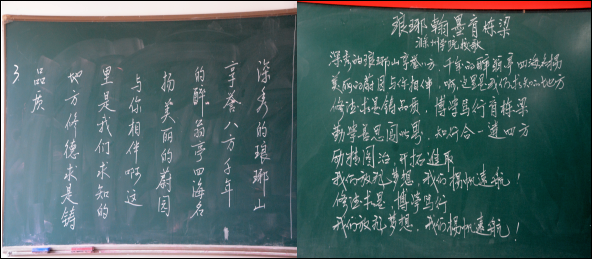 深秀的琅琊山
享誉八方千年
的醉翁亭四海名
扬美丽的蔚园
与你相伴啊这
里是我们求知的
地方修德求是铸
品质
3
琅琊翰墨育栋梁
滁州学院校歌
深秀的琅琊山享誉八方 千年的醉翁亭四海名扬
美丽的蔚园与你相伴 啊,这里是我们求知的地方
修德求是铸品质 博学笃行育栋梁
勤学善思 知行合一进四方
励精图治 开拓进取
我们放飞梦想,我们扬帆远航!
修德求是 博学笃行
我们放飞梦想,我们扬帆远航!